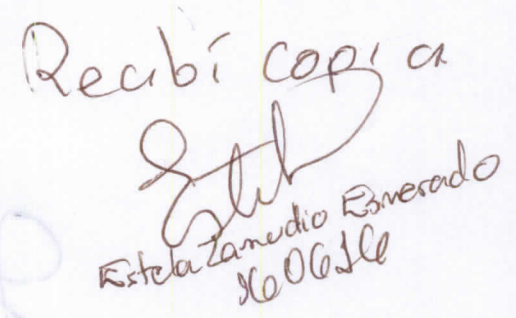 Recibí copia
Estela Zamudio Esmerado
160616